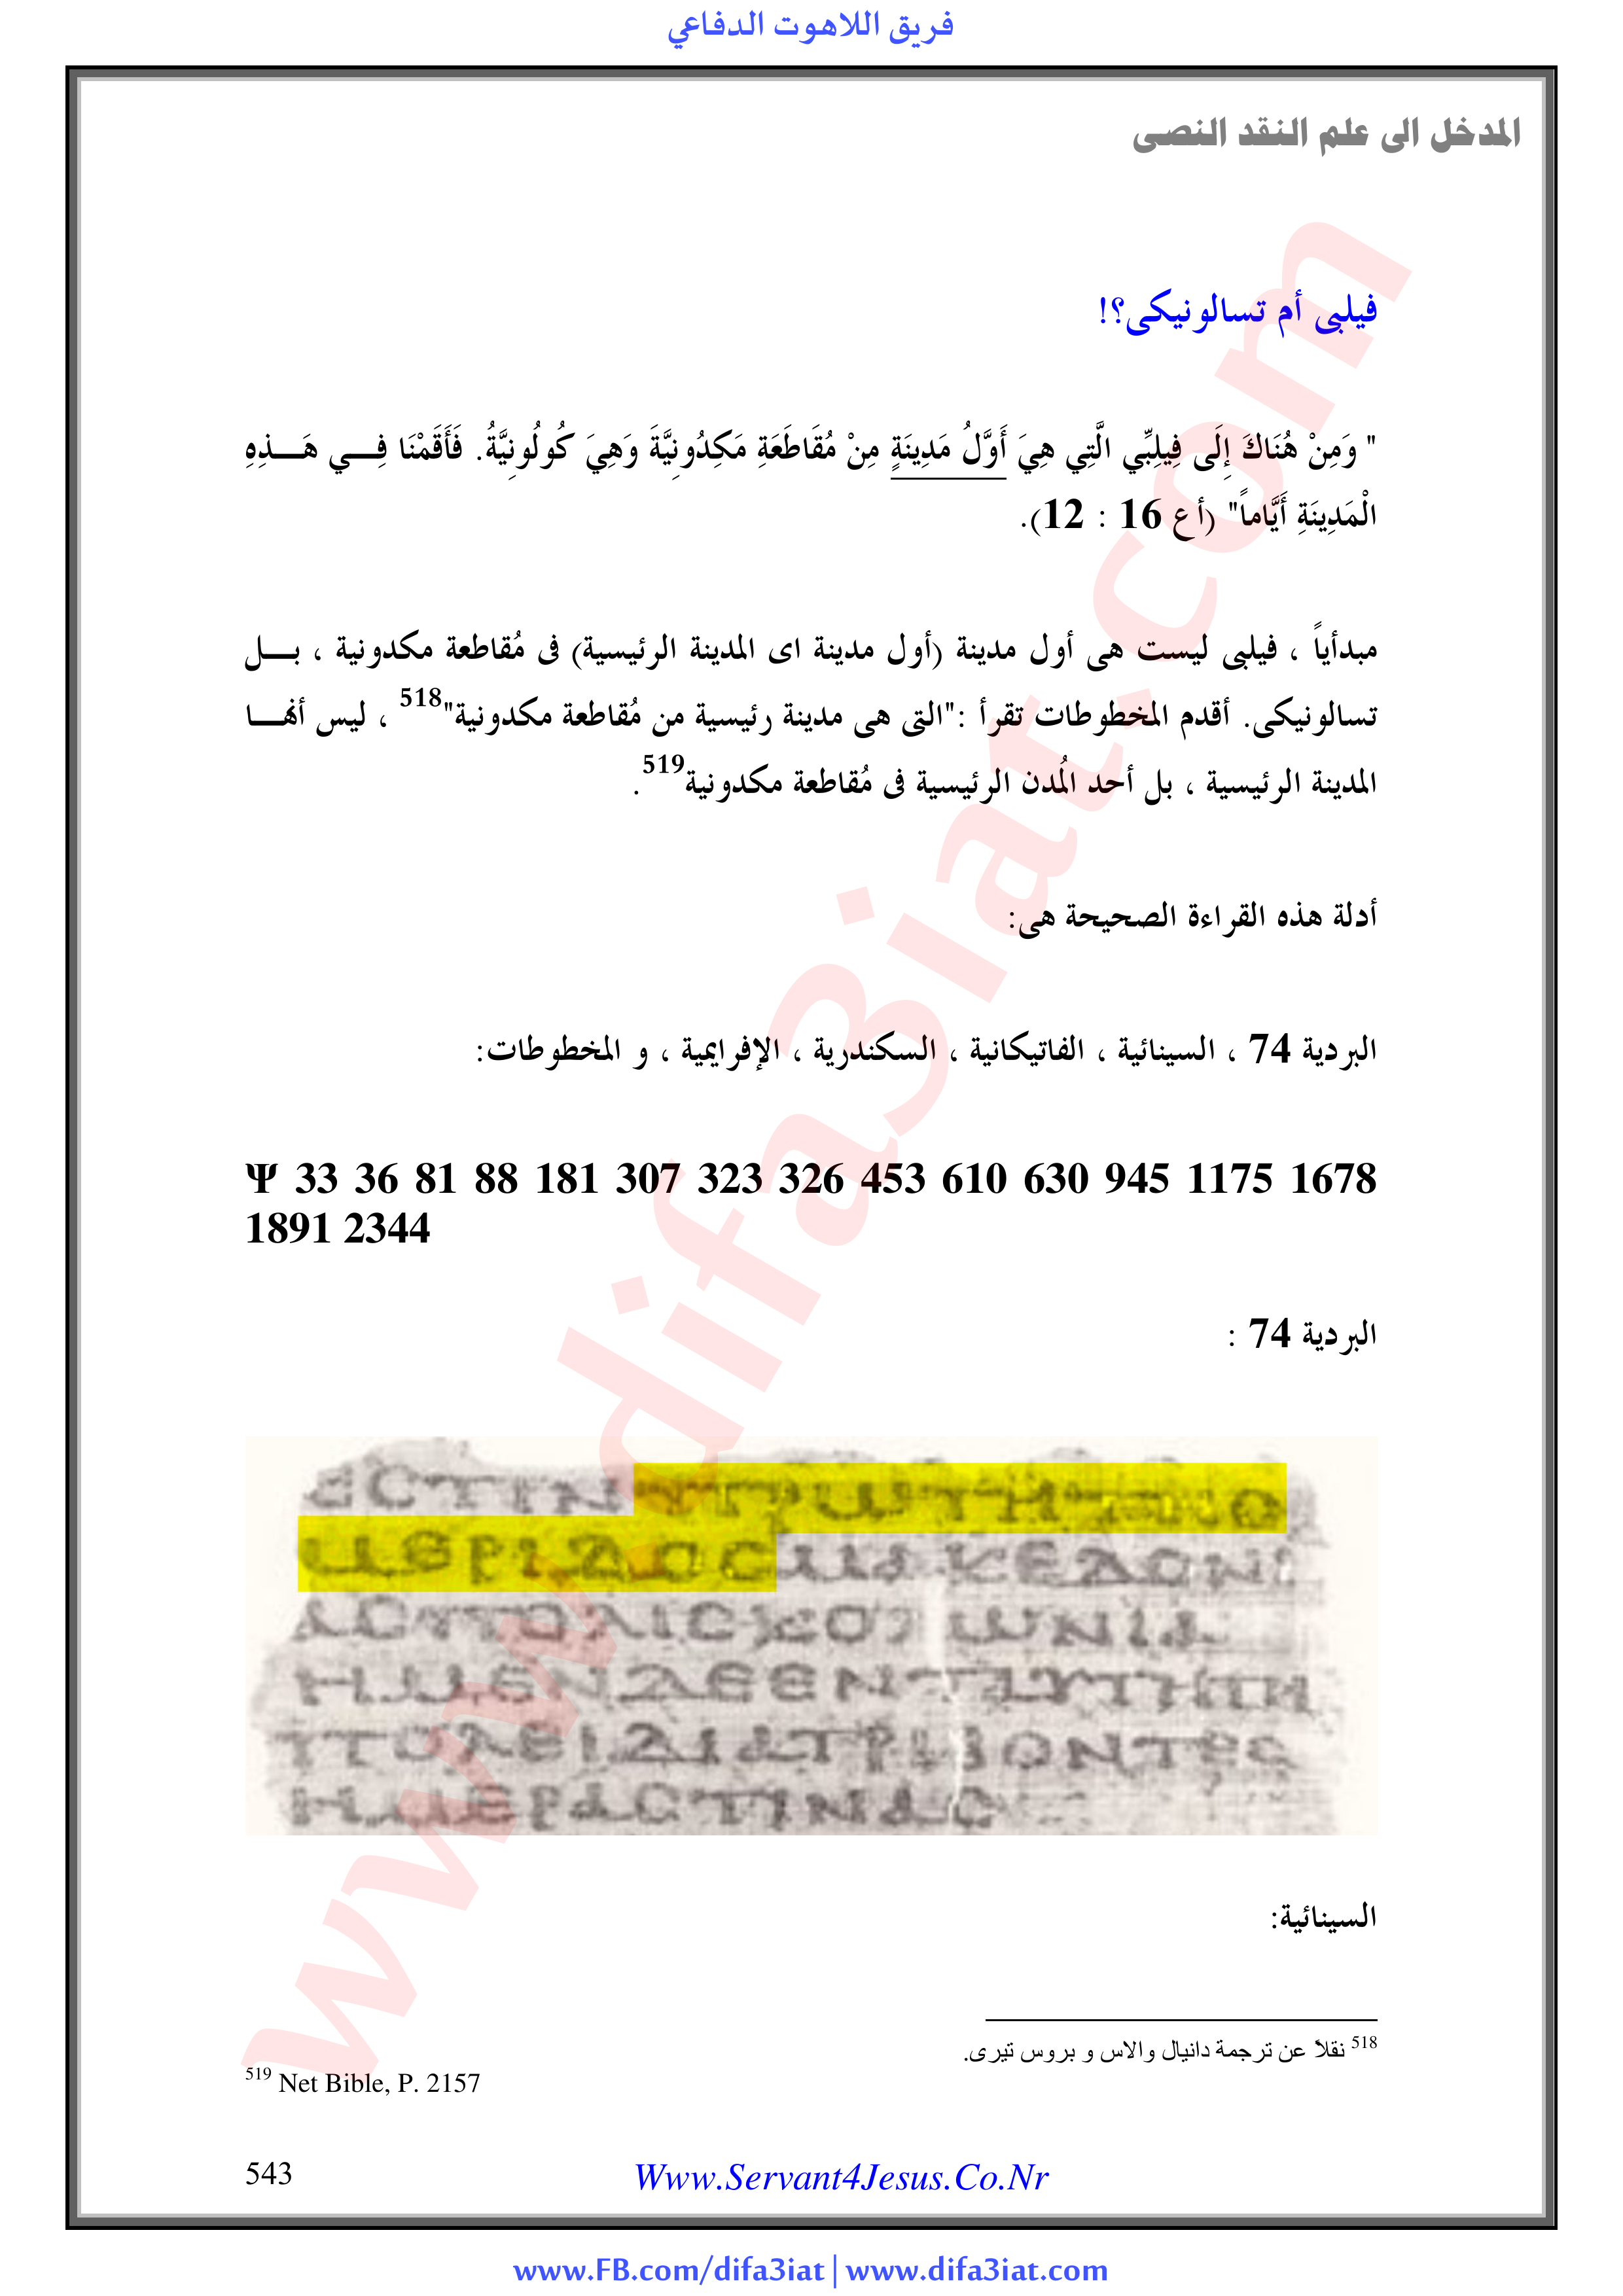 فريق اللاهوت الدفاعي
المدخل الى علم النقد النصى
فيلبى أم تسالونيكى؟!
" وَمِنْ هُنَاكَ إِلَى فِيلِبِّي الَّتِي هِيَ أَوَّلُ مَدِينَةٍ مِنْ مُقَاطَعَةِ مَكِدُونِيَّةَ وَهِيَ كُولُونِيَّةُ. فَأَقَمْنَا فِــــي هَــــذِهِ
الْمَدِينَةِ أَيَّاماً" (أع 16 : 12).
مبدأياً ، فيلبى ليست هى أول مدينة (أول مدينة اى المدينة الرئيسية) فى مُقاطعة مكدونية ، بــــل
تسالونيكى. أقدم المخطوطات تقرأ :"التى هى مدينة رئيسية من مُقاطعة مكدونية"518 ، ليس أنهــــا
المدينة الرئيسية ، بل أحد المُدن الرئيسية فى مُقاطعة مكدونية519.
أدلة هذه القراءة الصحيحة هى:
البردية 74 ، السينائية ، الفاتيكانية ، السكندرية ، الإفرايمية ، و المخطوطات:
Ψ 33 36 81 88 181 307 323 326 453 610 630 945 1175 1678
1891 2344
البردية 74 :
ΕCΤΙΝ ΠΡωΤΗ ΜΕ
ΡΙΔΟC ΜΑΚΕΔΟΝΙ
ΑCΠΟΛΙCΚΟΛωΝΙΑ
ΗΜΕΝΔΕΕΝΤΑΥΤΗΤΗ
ΠΟΛΕΙΔΙΑΤΡΙΒΟΝΤΕC
ΗΜΕΡΑCΤΙΝΑC
السينائية:
518 نقلاً عن ترجمة دانيال والاس و بروس تيرى.
519 Net Bible, P. 2157
543
Www.Servant4Jesus.Co.Nr
www.FB.com/difa3iat | www.difa3iat.com
www.difa3iat.com